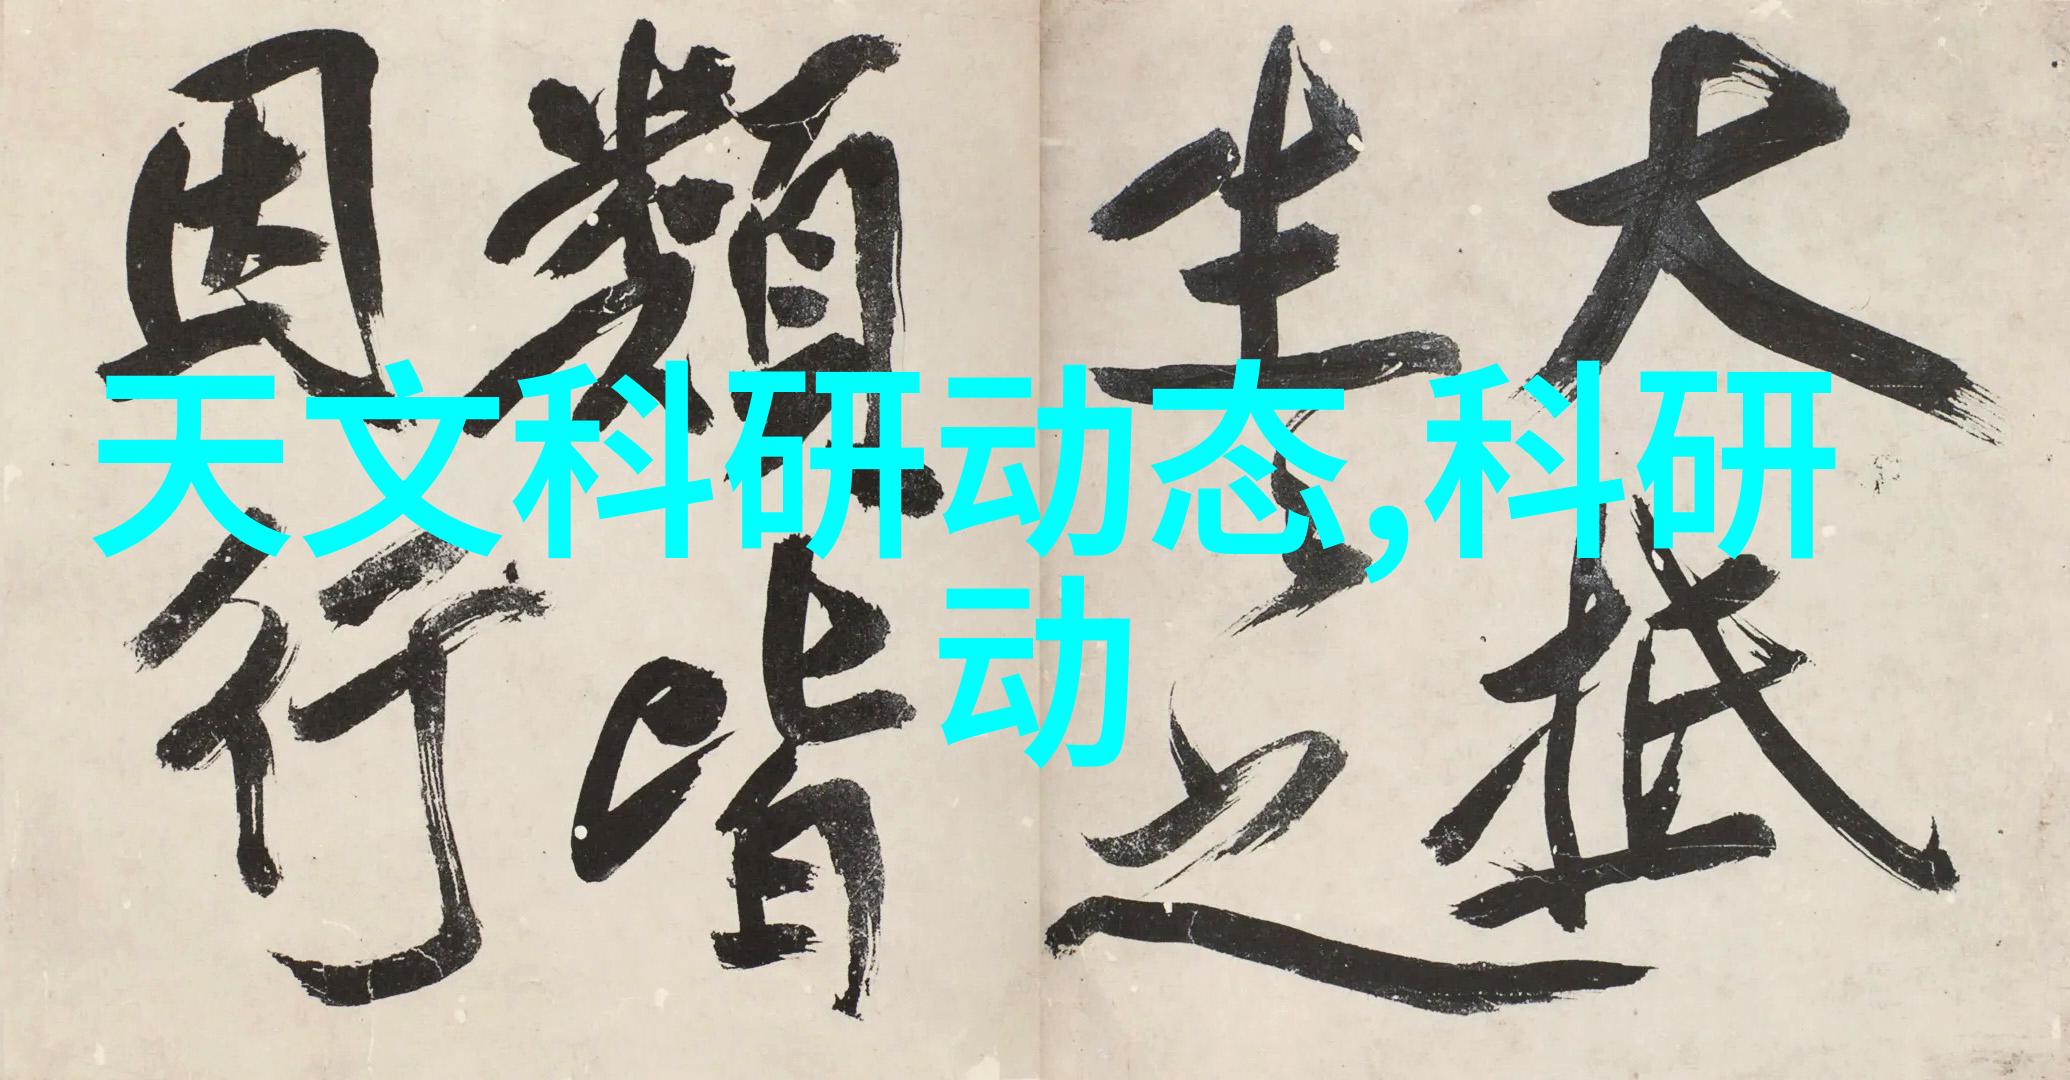 天文科研动态,科研
动
大抵
生之
類皆
因行